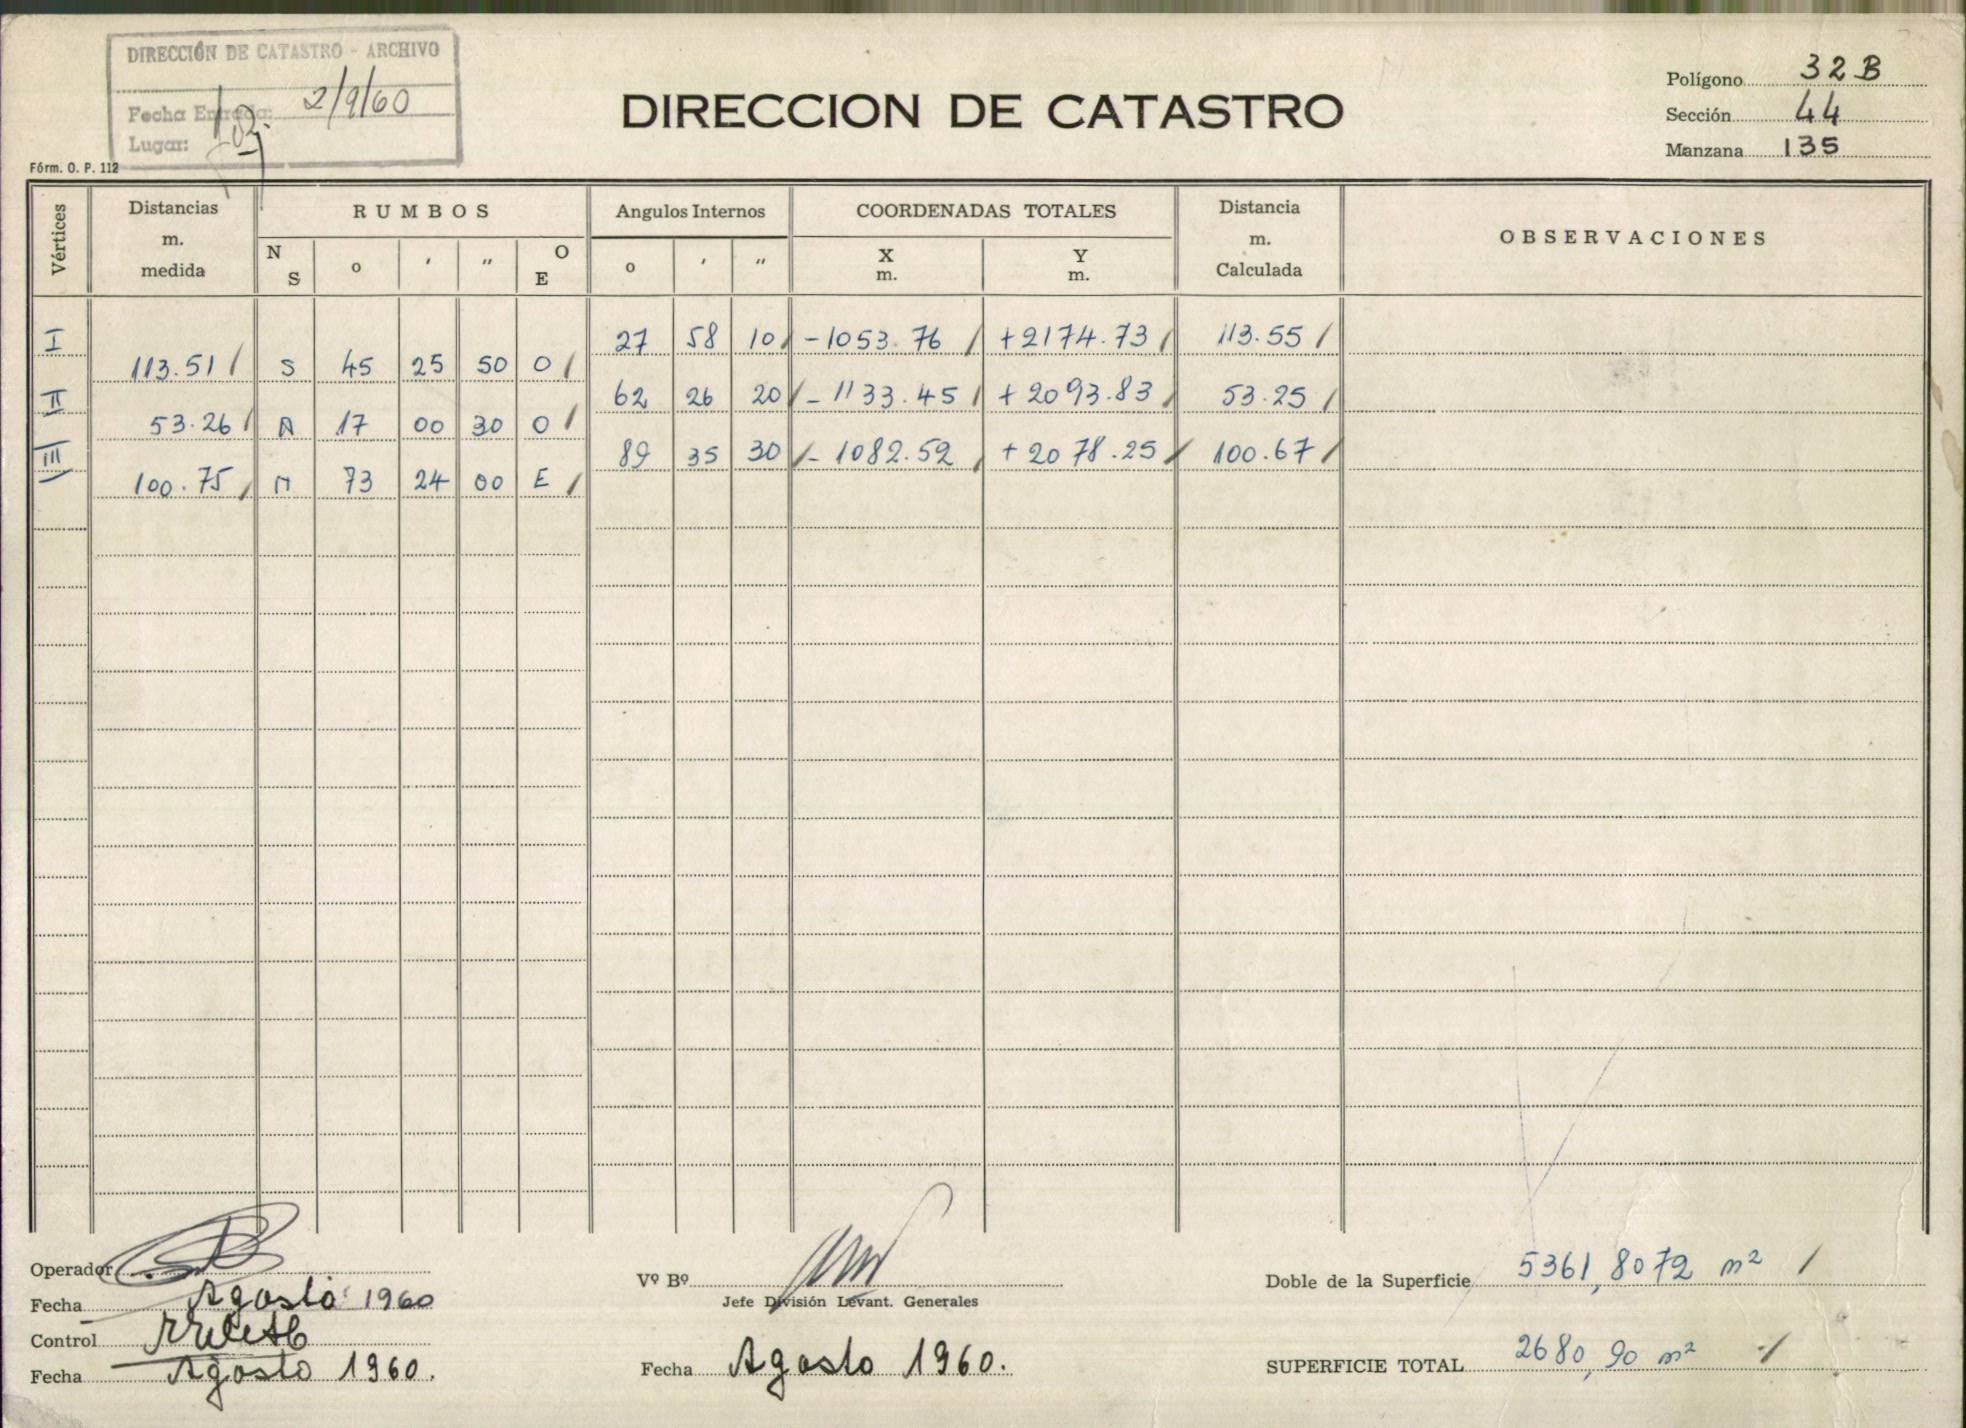 DIRECCIÓN DE CATASTRO - ARCHIVO
Fecha Entrada: 2/9/60
Lugar:
Fórm. O. P. 112
DIRECCION DE CATASTRO
Polígono 32 B
Sección 44
Manzana 135
Vértices
Distancias m. medida
RUMBOS
N S o ′ ″ O E
Angulos Internos
o ′ ″
COORDENADAS TOTALES
X m. Y m.
Distancia m. Calculada
OBSERVACIONES
I 27 58 10 -1053.76 +2174.73 113.55
113.51 S 45 25 50 O
II 62 26 20 -1133.45 +2093.83 53.25
53.26 17 00 30 O
III 89 35 30 -1082.52 +2078.25 100.67
100.75 N 73 24 00 E
Operador
Fecha Agosto 1960
Control
Fecha Agosto 1960.
Vº Bº
Jefe División Levant. Generales
Fecha Agosto 1960.
Doble de la Superficie 5361,8072 m²
SUPERFICIE TOTAL 2680,90 m²